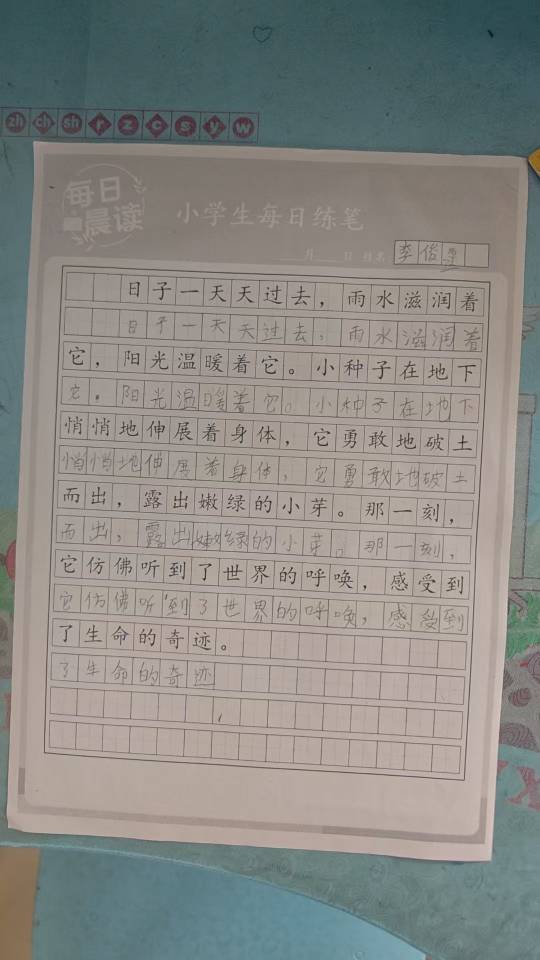 zh ch sh r z c s y w
每日
晨读
小学生每日练笔
月 日 姓名 李俊
日子一天天过去，雨水滋润着
日子一天天过去，雨水滋润着
它，阳光温暖着它。小种子在地下
它，阳光温暖着它。小种子在地下
悄悄地伸展着身体，它勇敢地破土
悄悄地伸展着身体，它勇敢地破土
而出，露出嫩绿的小芽。那一刻，
而出，露出嫩绿的小芽。那一刻，
它仿佛听到了世界的呼唤，感受到
它仿佛听到了世界的呼唤，感受到
了生命的奇迹。
了生命的奇迹